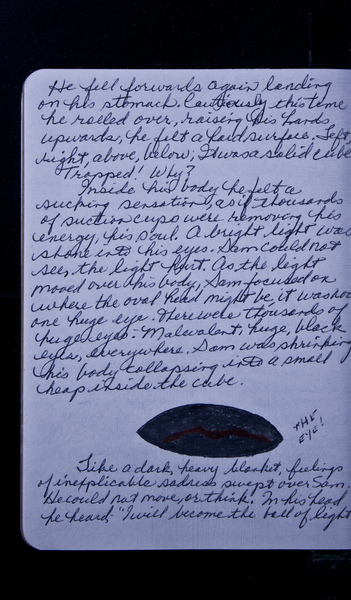 He fell forwards again landing
on his stomach. Cautiously this time
he rolled over, raising his hands
upwards, he felt a hard surface. Left
right, above, below; It was a solid cube
Trapped! Why?
Inside his body he felt a
sucking sensation, as if thousands
of suction cups were removing his
energy, his soul. A bright light was
shone into his eyes. Sam could not
see, the light hurt. As the light
moved over his body, Sam focused on
where the oval head might be, it was now
one huge eye. There were thousands of
huge eyes. Malevalent, huge, black
eyes, everywhere. Sam was shrinking
his body collapsing into a small
heap inside the cube.
THE
EYE!
Like a dark, heavy blanket, feelings
of inexplicable sadness swept over Sam.
He could not move, or think! In his head
he heard; "I will become the ball of light